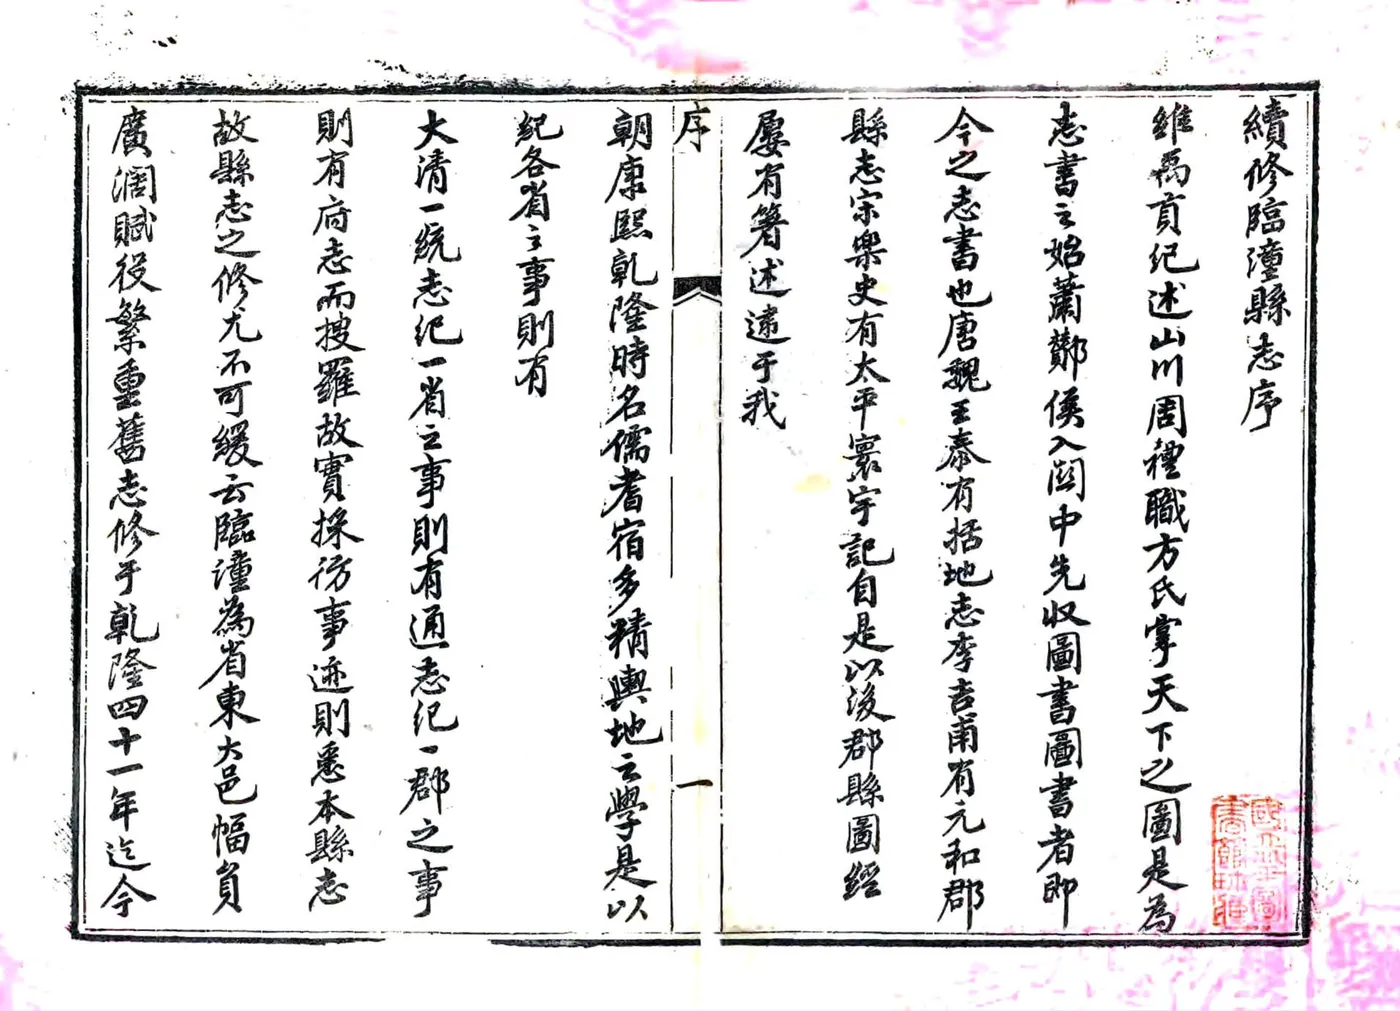 續修臨潼縣志序
維禹貢紀述山川周禮職方氏掌天下之圖是為
志書之始蕭酇侯入關中先收圖書圖書者即
今之志書也唐魏王泰有括地志李吉甫有元和郡
縣志宋樂史有太平寰宇記自是以後郡縣圖經
屢有著述逮于我
序
一
朝康熙乾隆時名儒耆宿多精輿地之學是以
紀各省之事則有
大清一統志紀一省之事則有通志紀一郡之事
則有府志而搜羅故實採訪事迹則悉本縣志
故縣志之修尤不可緩云臨潼為省東大邑幅員
廣濶賦役繁重舊志修于乾隆四十一年迄今